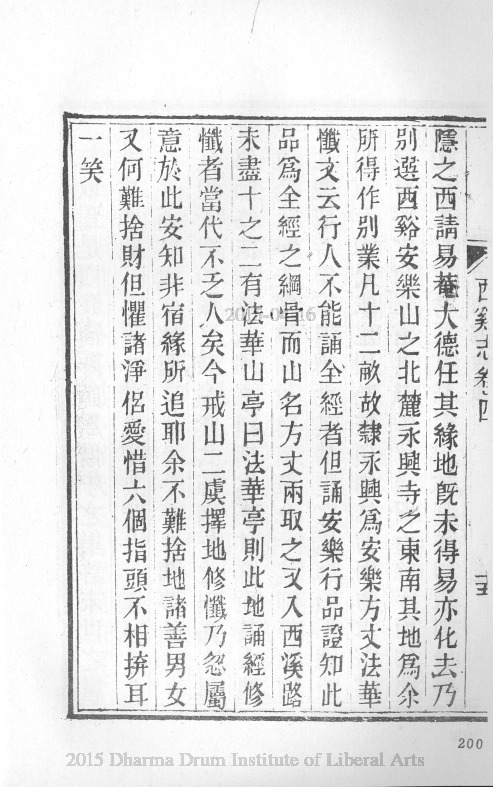 西谿志卷四
隱之西請易菴大德任其緣地旣未得易亦化去乃
別選西谿安樂山之北麓永興寺之東南其地爲余
所得作別業凡十二畝故隸永興爲安樂方丈法華
懺文云行人不能誦全經者但誦安樂行品證知此
品爲全經之綱骨而山名方丈兩取之又入西溪路
未盡十之二有法華山亭曰法華亭則此地誦經修
懺者當代不乏人矣今戒山二虞擇地修懺乃忽屬
意於此安知非宿緣所追耶余不難捨地諸善男女
又何難捨財但懼諸淨侶愛惜六個指頭不相拚耳
一笑
200
2015 Dharma Drum Institute of Liberal Arts